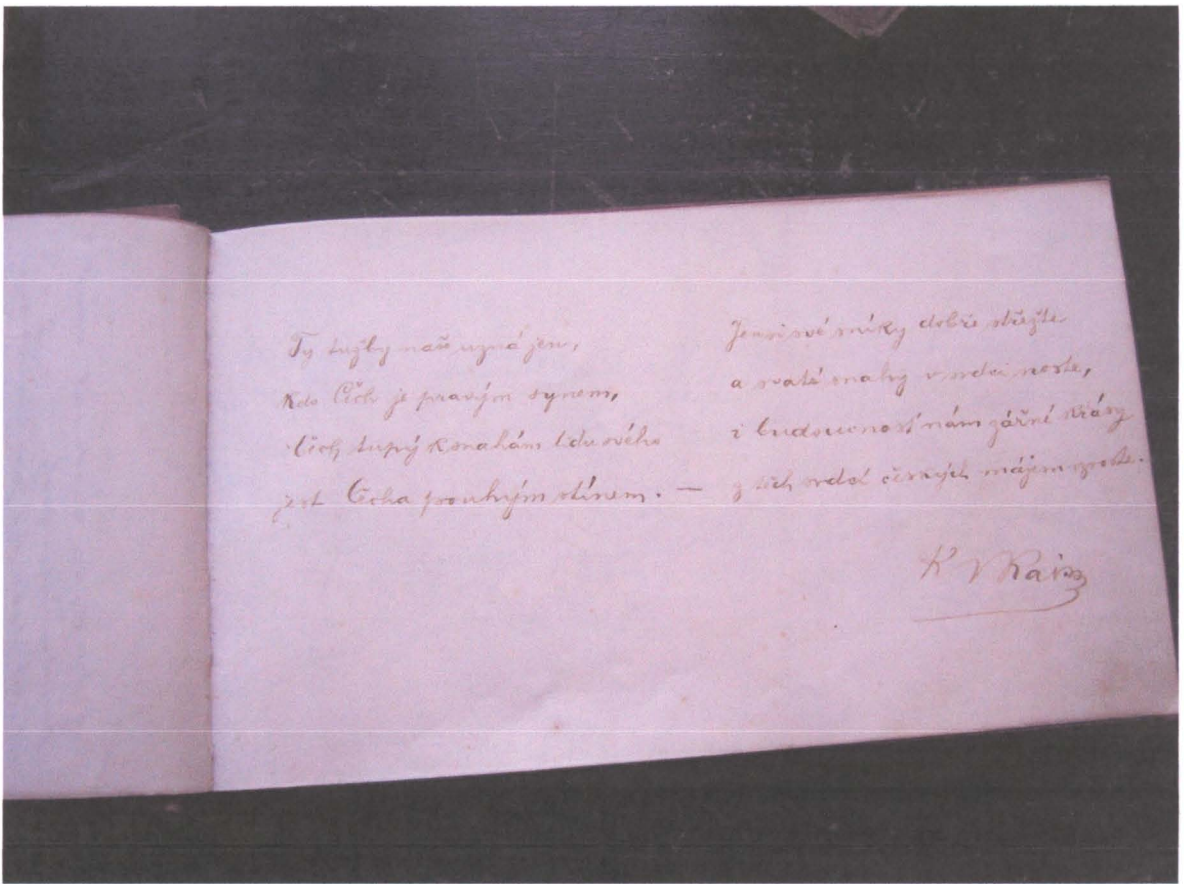 Ty tužby naše uzná jen,
kdo Čech je pravým synem,
Čech tupý k snahám lidu svého
jest Čecha pouhým stínem. —
Jen si své sníky dobře střežte
a svaté snahy v srdci neste,
i budoucnost nám zářné krásy
z těch srdcí českých májem vzroste.
K V Rais